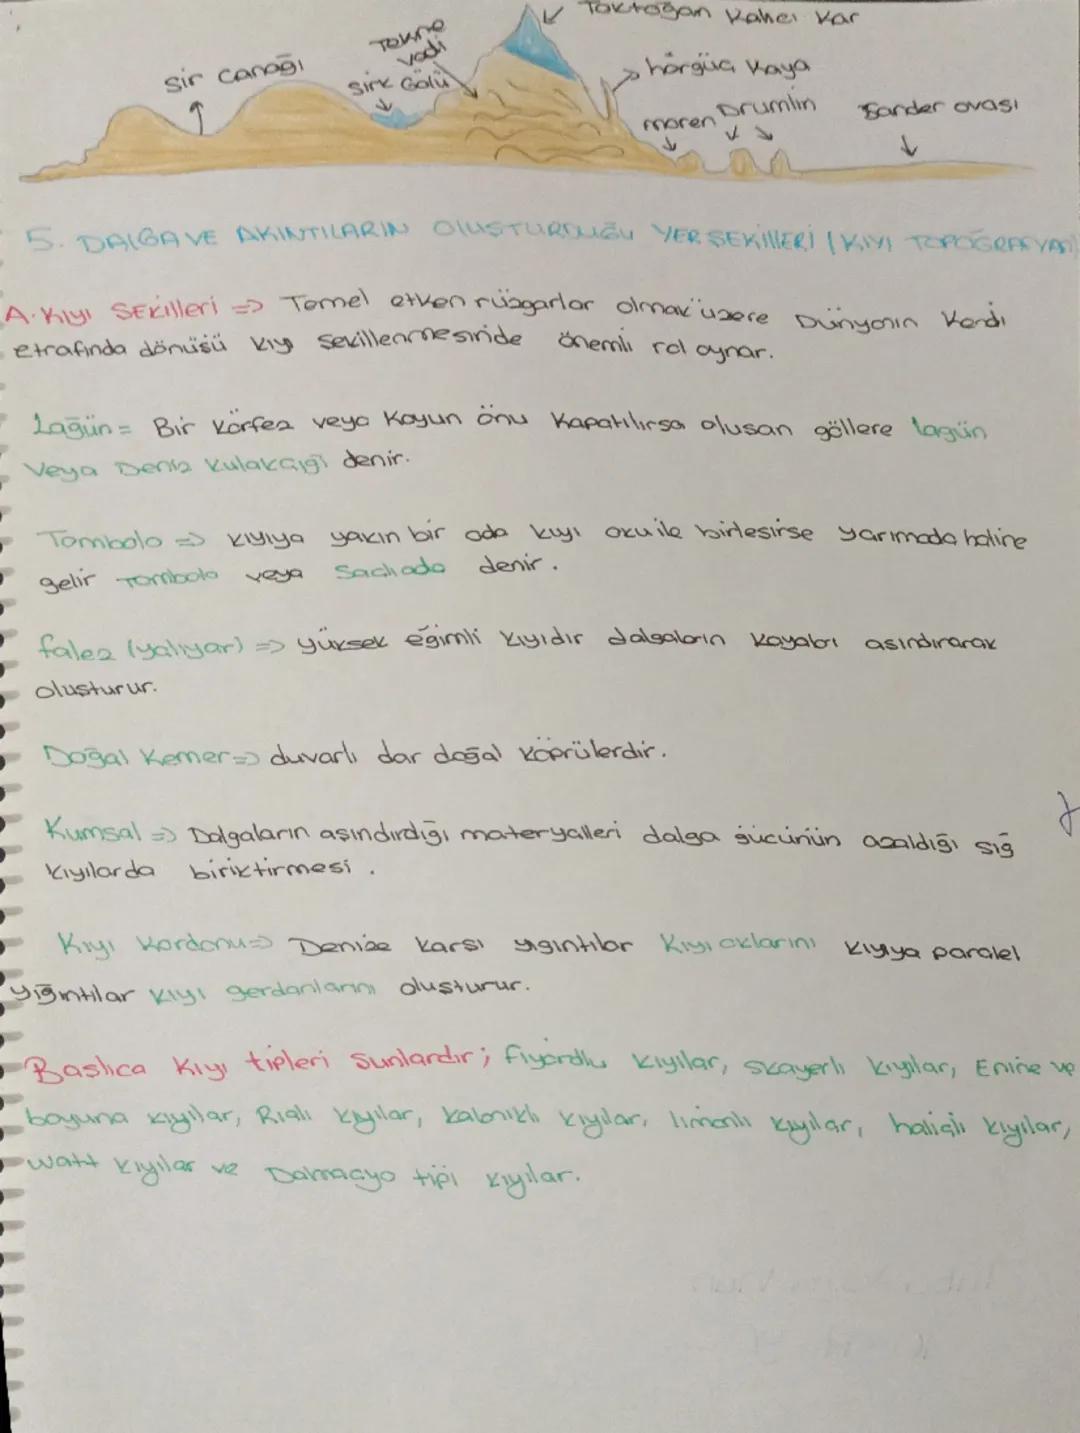 Toktağan Kalıcı Kar
Tekne
vadi
sir canağı
sirk Gölü
hörgüç kaya
moren
Drumlin
Sander ovası
5. DALGA VE AKINTILARIN OLUSTURDUĞU YER SEKİLLERİ (KIYI TOPOĞRAFYASI)
A. Kıyı SEKilleri => Temel etken rüzgarlar olmak üzere Dünyanın Kendi
etrafında dönüsü kıyı sekillenmesinde önemli rol oynar.
Lağün = Bir körfez veya Koyun önü kapatılırsa olusan göllere lagün
veya Deniz kulakcığı denir.
Tombolo => kıyıya yakın bir ada kıyı oku ile birlesirse yarımada haline
gelir Tombolo veya Saclıada denir.
falez (yalıyar) => yüksek eğimli kıyıdır dalgaların kayaları asındırarak
oluşturur.
Doğal Kemer => duvarlı dar doğal köprülerdir.
Kumsal => Dalgaların aşındırdığı materyalleri dalga gücünün azaldığı sığ
kıyılarda biriktirmesi.
Kıyı Kordonu => Denize karsı yıgıntılar Kıyı oklarını kıyıya paralel
yiğıntılar kıyı gerdanlarını oluşturur.
Baslıca Kıyı tipleri sunlardır; fiyordlu kıyılar, skayerli kıyılar, Enine ve
boyuna kıyılar, Rialı kıyılar, kalanklı kıyılar, limanlı kıyılar, haliçli kıyılar,
watt kıyılar ve Dalmaçya tipi kıyılar.